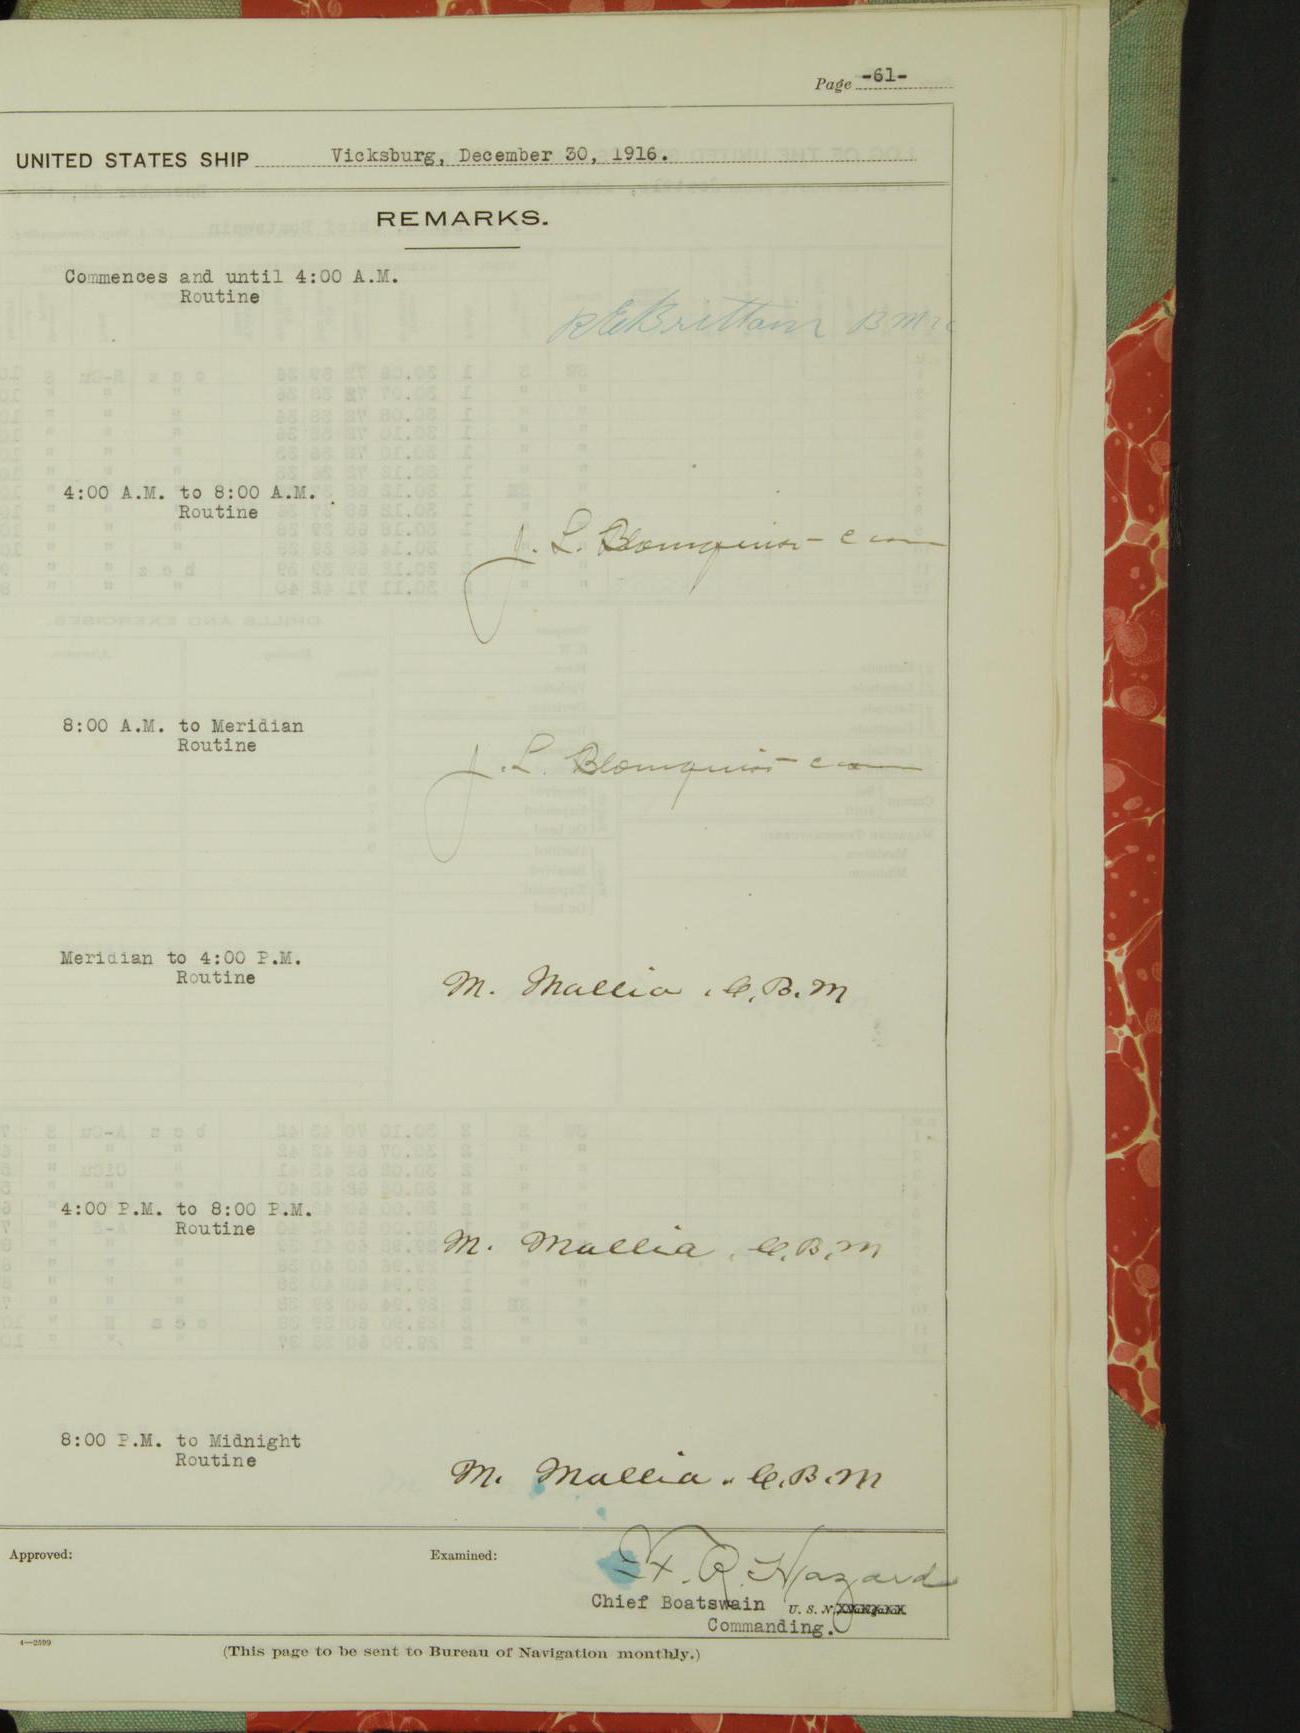 Page -61-
UNITED STATES SHIP Vicksburg, December 30, 1916.
REMARKS.
Commences and until 4:00 A.M.
Routine
R E Brittain B M
4:00 A.M. to 8:00 A.M.
Routine
J. L. Blomquist -
8:00 A.M. to Meridian
Routine
J. L. Blomquist -
Meridian to 4:00 P.M.
Routine
M. Mallia. C.B.M
4:00 P.M. to 8:00 P.M.
Routine
M. Mallia. C.B.M
8:00 P.M. to Midnight
Routine
M. Mallia. C.B.M
Approved:
Examined:
R. Hazard
Chief Boatswain U. S. N.
Commanding.
4—2599
(This page to be sent to Bureau of Navigation monthly.)